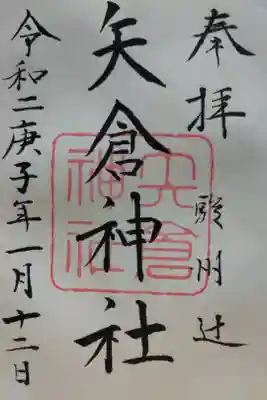 奉拝 駿州辻
矢倉神社
令和二庚子年一月十二日
矢倉神社